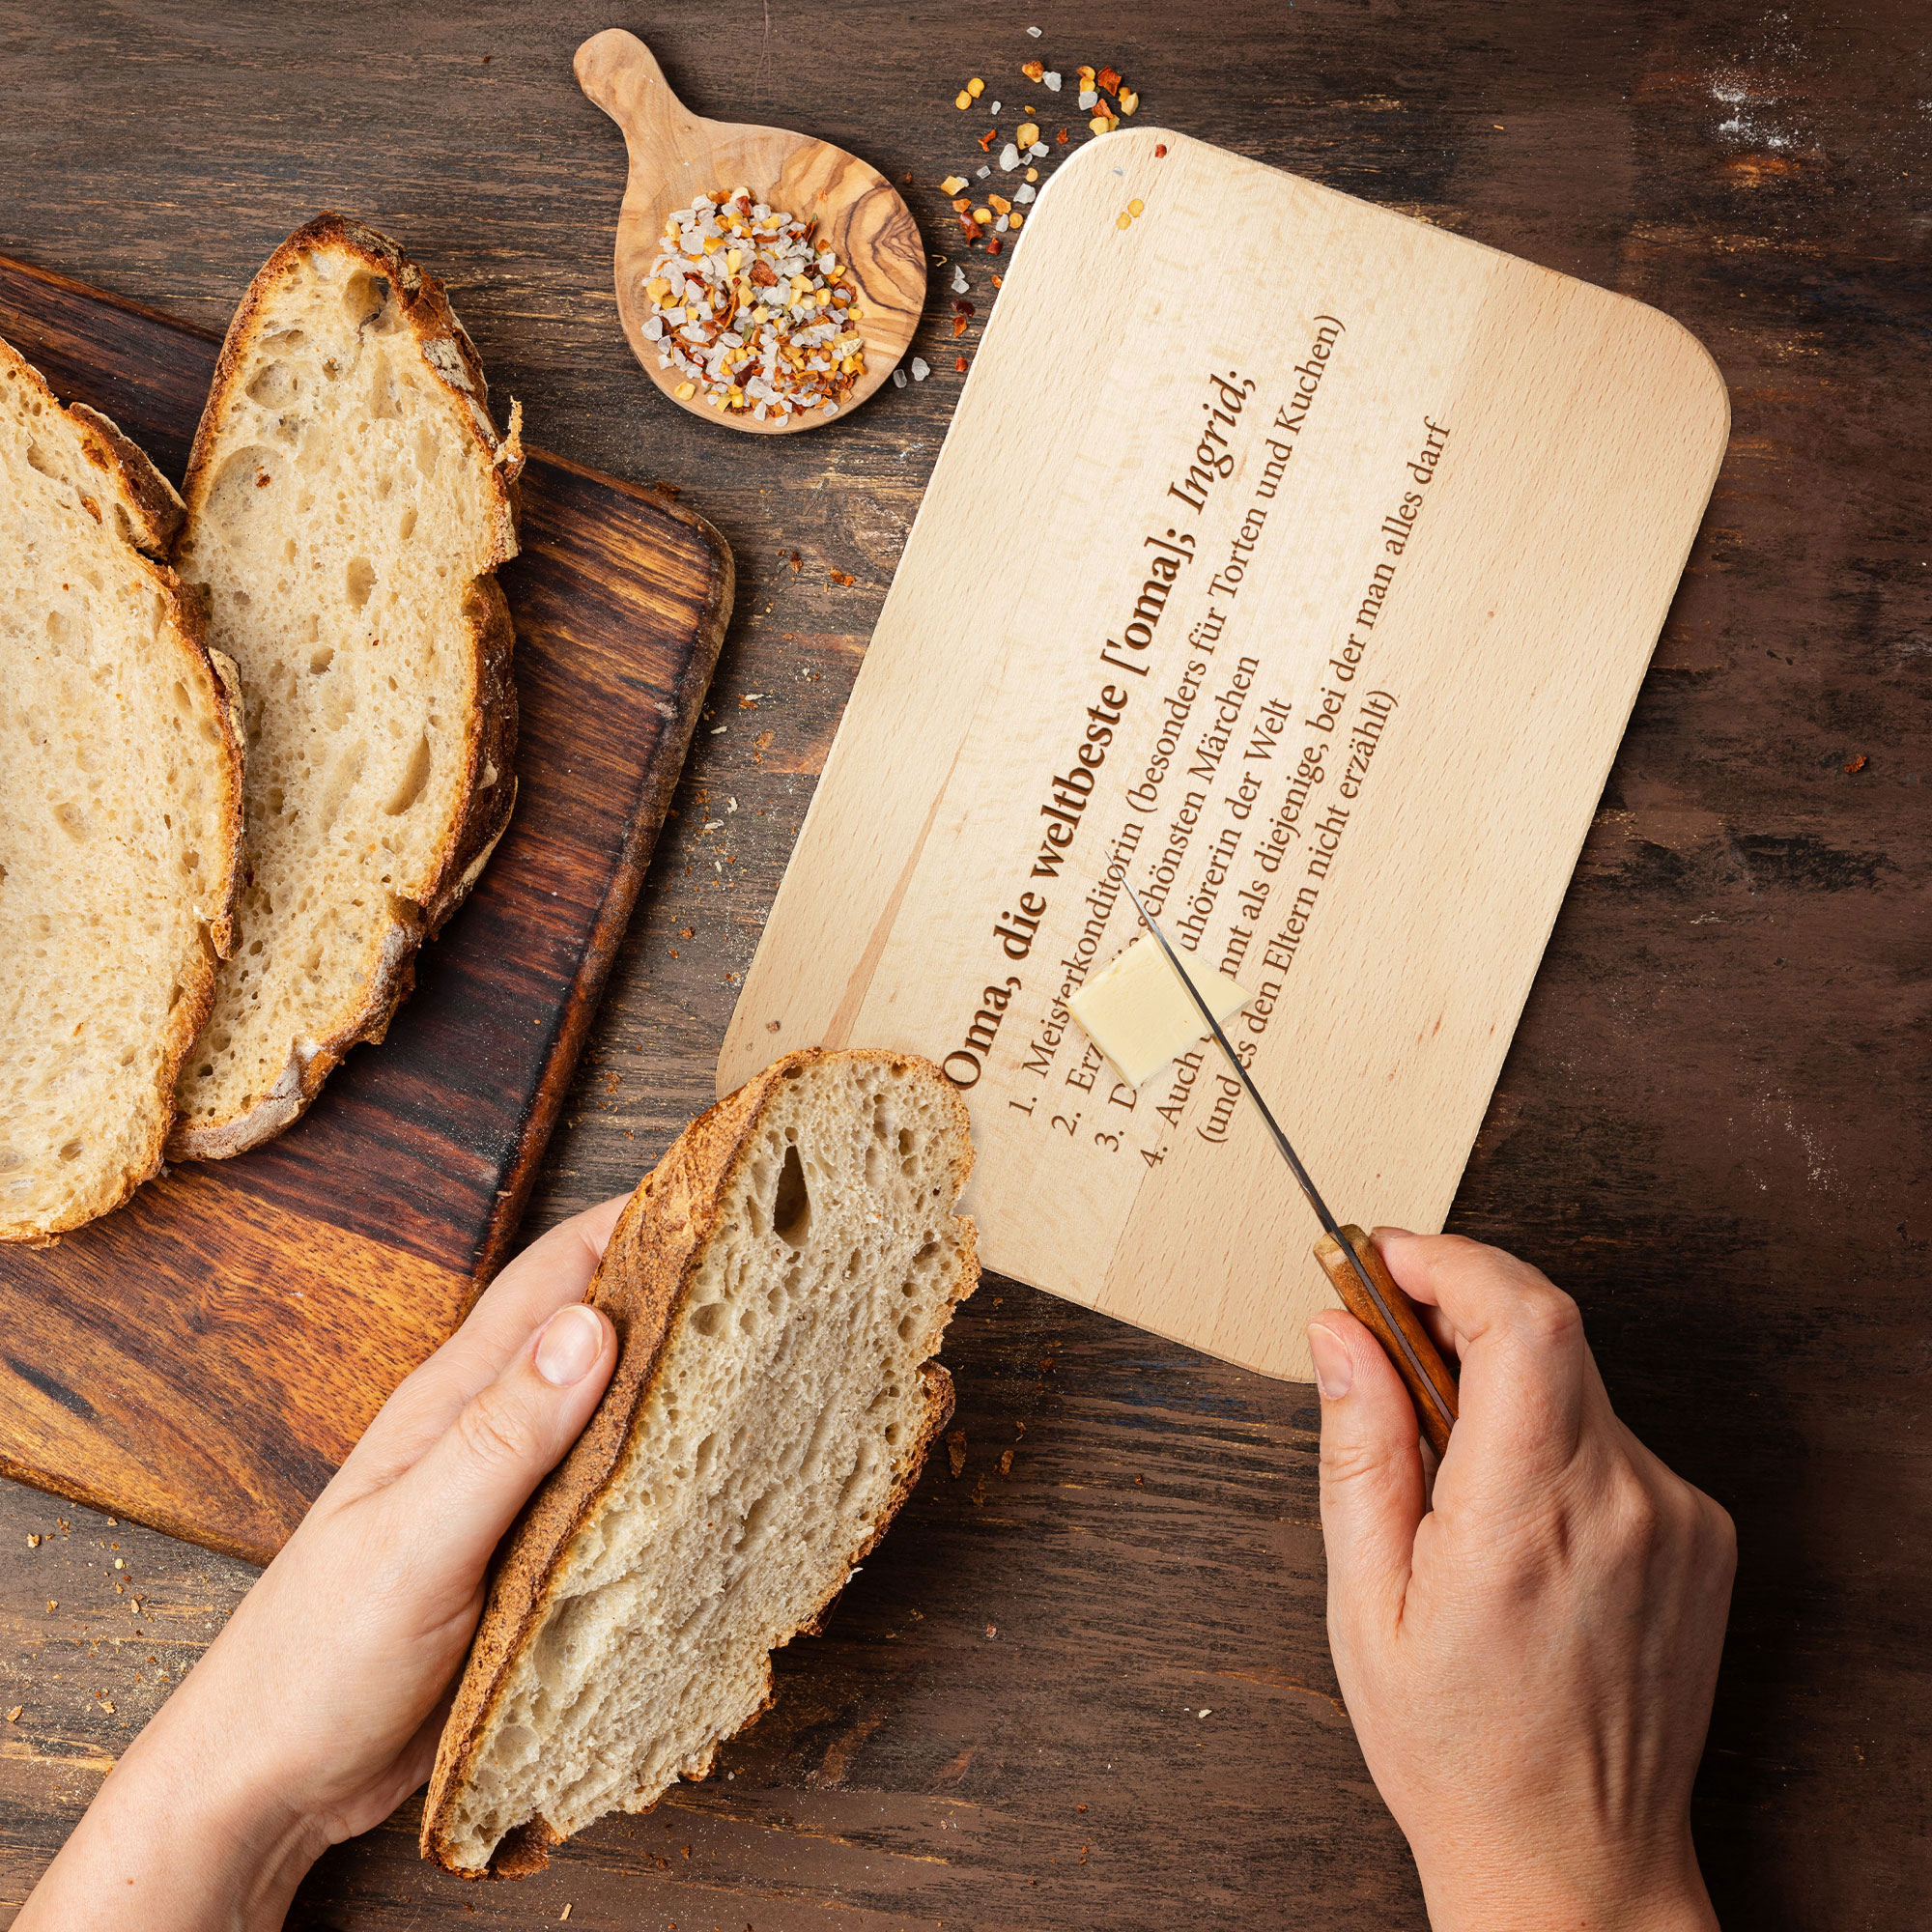 Oma, die weltbeste ['oma]; Ingrid;
1. Meisterkonditorin (besonders für Torten und Kuchen)
2. schönsten Märchen
3. der Welt
4. Auch als diejenige, bei der man alles darf
(und es den Eltern nicht erzählt)